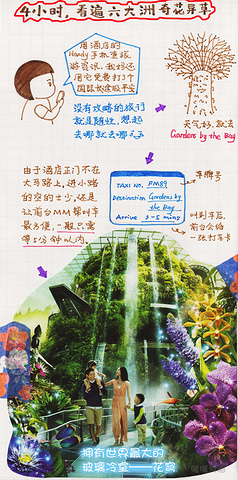 4小时，看遍六大洲奇花异草
用酒店的
Handy手机查旅
游资讯，我好还
用它免费打了个
国际长途报平安
没有攻略的旅行
就是随性，想起
去哪就去哪~
天气好，就去
Gardens by the Bay
由于酒店正门不在
大马路上，进小路
的空的士少，还是
让前台MM帮叫车
最方便，一般只需
等5分钟以内。
车牌号
TAXI NO. FM89
Destination Gardens by
the Bay
Arrive 3-5 mins
叫到车后，
前台会给
一张打车卡
拥有世界最大的
玻璃冷室——花穹